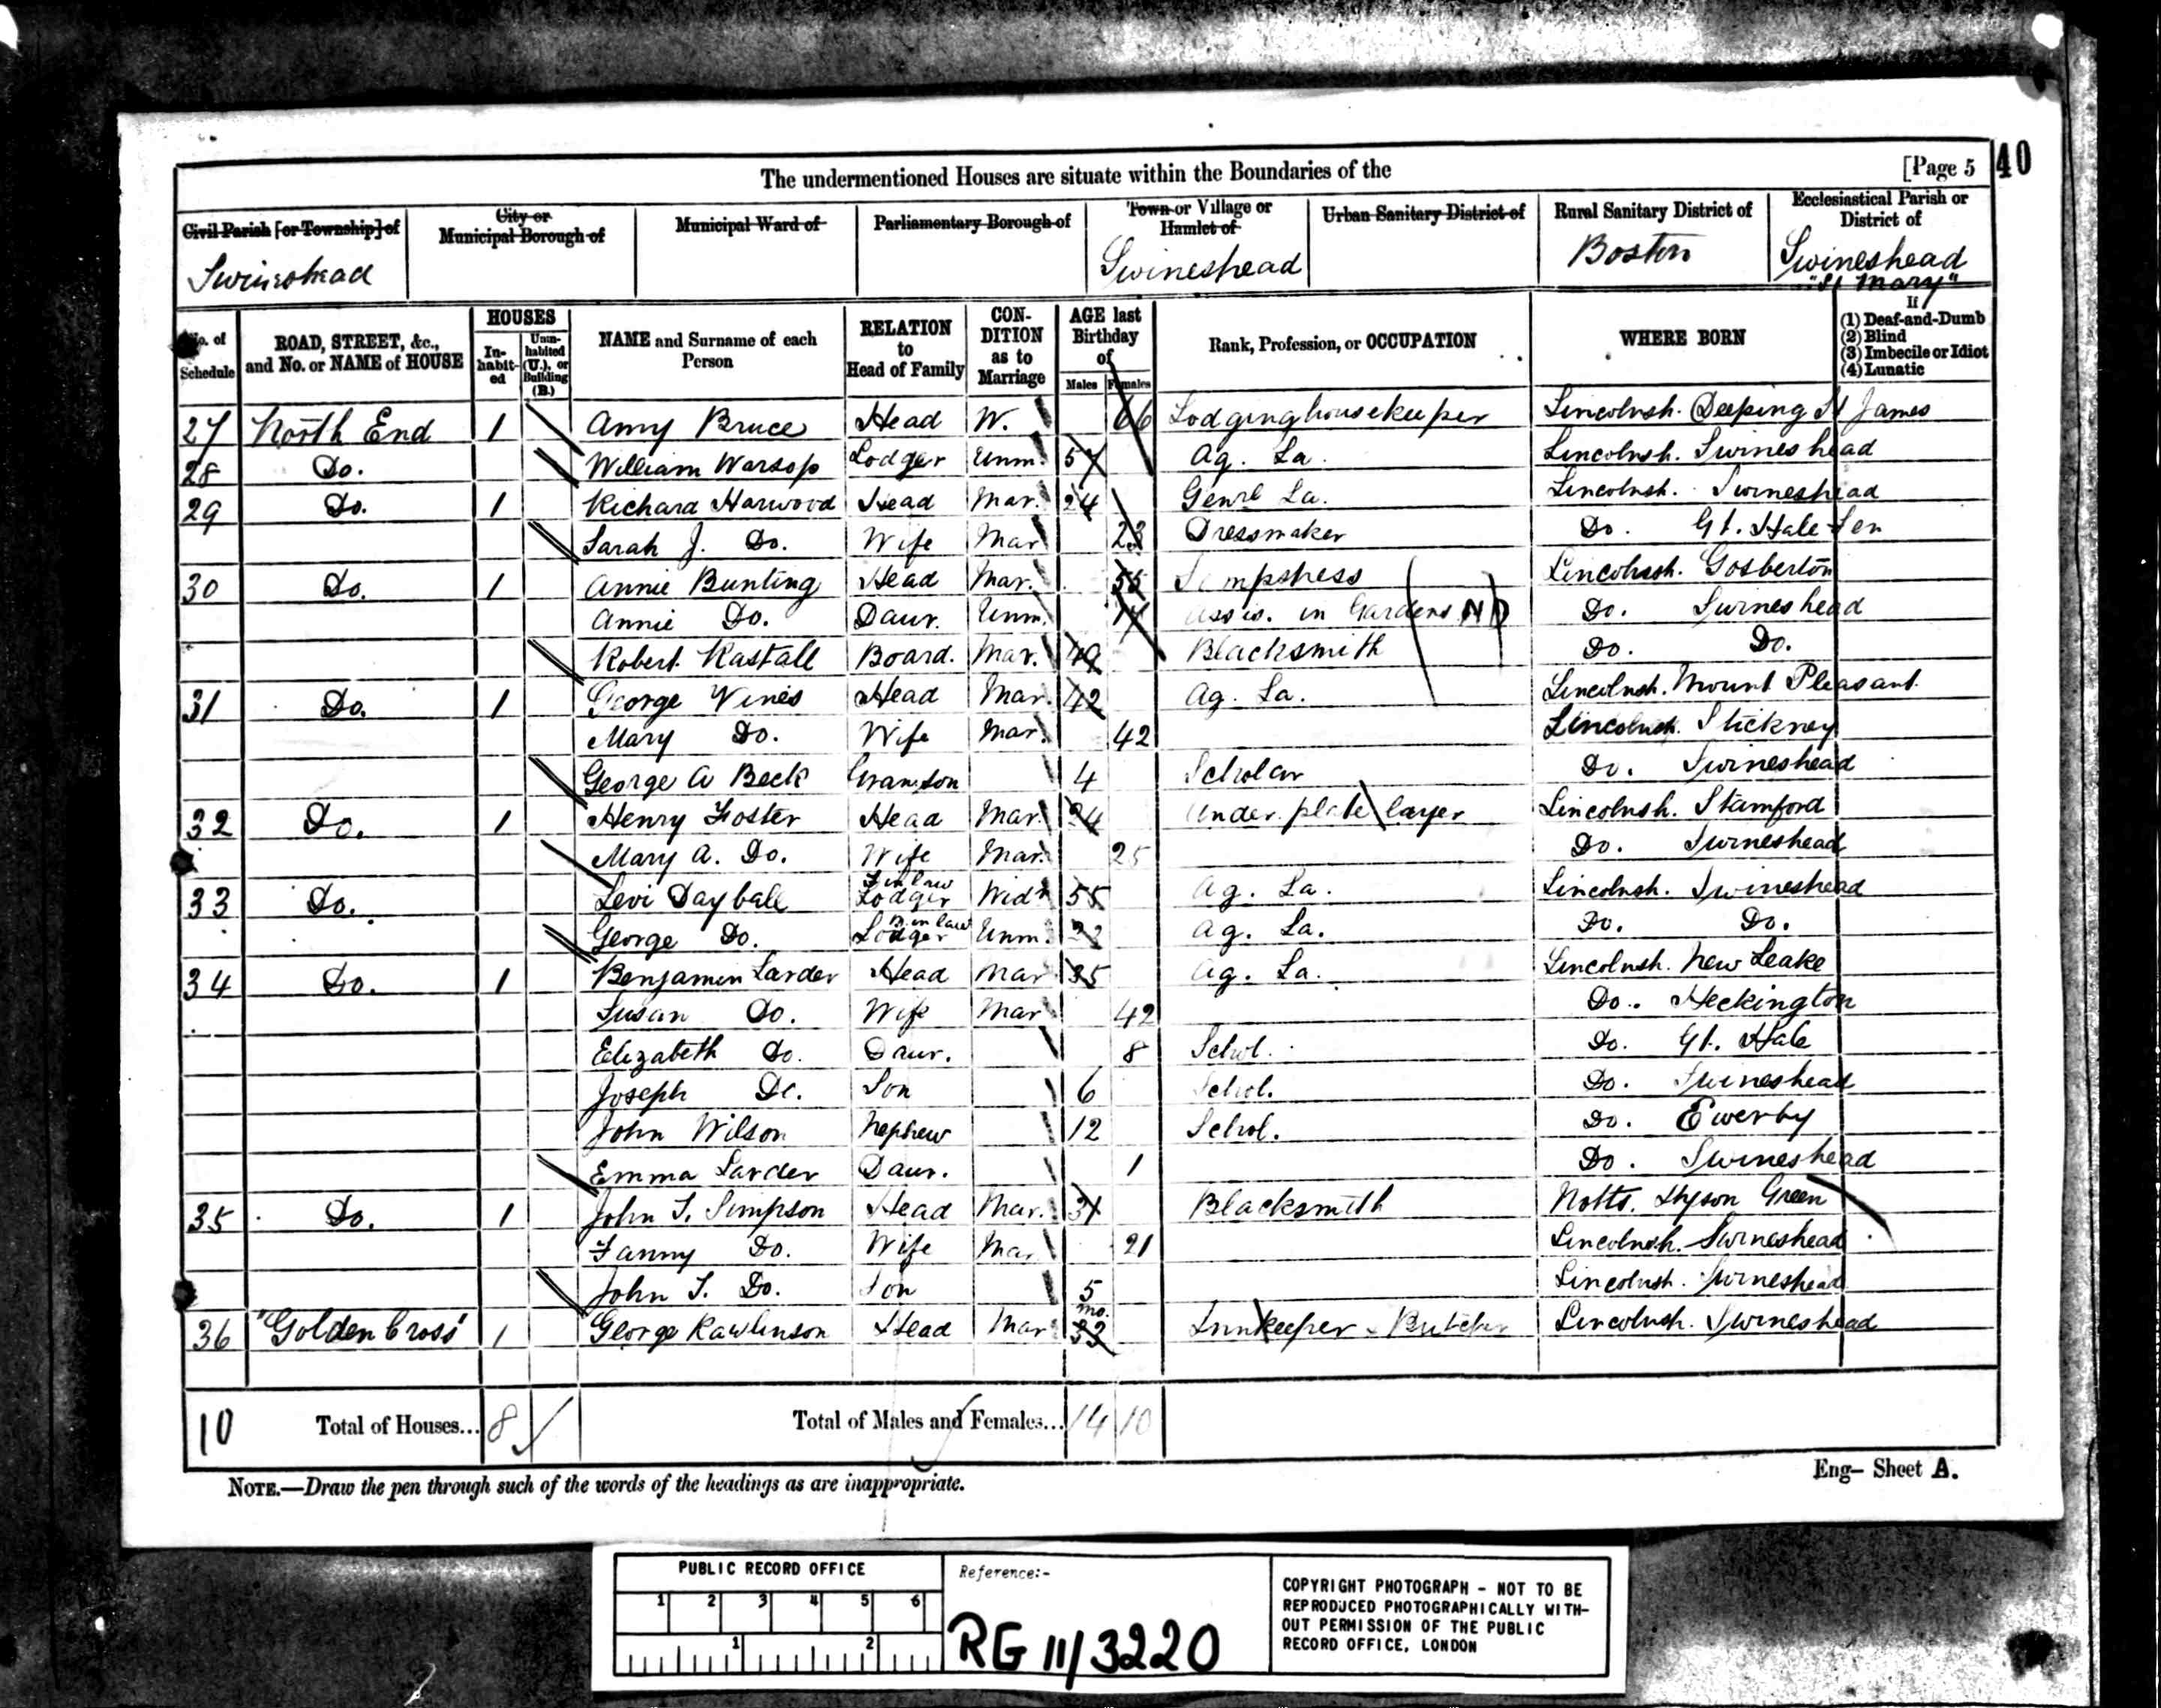 The undermentioned Houses are situate within the Boundaries of the [Page 5 40
Civil Parish [or Township] of City or Municipal Borough of Municipal Ward of Parliamentary Borough of Town or Village or Hamlet of Urban Sanitary District of Rural Sanitary District of Ecclesiastical Parish or District of
Swineshead Swineshead Boston Swineshead "St Mary"
No. of Schedule ROAD, STREET, &c., and No. or NAME of HOUSE HOUSES Inhabited Uninhabited (U.), or Building (B.) NAME and Surname of each Person RELATION to Head of Family CONDITION as to Marriage AGE last Birthday of Males Females Rank, Profession, or OCCUPATION WHERE BORN If (1) Deaf-and-Dumb (2) Blind (3) Imbecile or Idiot (4) Lunatic
27 North End 1 Amy Bruce Head W. 66 Lodginghousekeeper Lincolnsh. Deeping St James
28 Do. William Warsop Lodger Unm. 57 Ag. La. Lincolnsh. Swineshead
29 Do. 1 Richard Harwood Head Mar. 24 Genrl La. Lincolnsh. Swineshead
Sarah J. Do. Wife Mar 23 Dressmaker Do. Gt. Hale Fen
30 Do. 1 Annie Bunting Head Mar. 55 Sempstress Lincolnsh. Gosberton
Annie Do. Daur. Unm. Assis. in Gardens ND Do. Swineshead
Robert Rastall Board. Mar. 49 Blacksmith Do. Do.
31 Do. 1 George Vines Head Mar. 42 Ag. La. Lincolnsh. Mount Pleasant
Mary Do. Wife Mar. 42 Lincolnsh. Stickney
George A Beck Grandson 4 Scholar Do. Swineshead
32 Do. 1 Henry Foster Head Mar. 24 Under plate layer Lincolnsh. Stamford
Mary A. Do. Wife Mar. 25 Do. Swineshead
33 Do. Levi Dayball Lodger F in law Widr 55 Ag. La. Lincolnsh. Swineshead
George Do. Lodger B in law Unm. 23 Ag. La. Do. Do.
34 Do. 1 Benjamin Larder Head Mar 35 Ag. La. Lincolnsh. New Leake
Susan Do. Wife Mar 42 Do. Heckington
Elizabeth Do. Daur. 8 Schol. Do. Gt. Hale
Joseph Do. Son 6 Schol. Do. Swineshead
John Wilson Nephew 12 Schol. Do. Ewerby
Emma Larder Daur. 1 Do. Swineshead
35 Do. 1 John T. Simpson Head Mar. 31 Blacksmith Notts. Hyson Green
Fanny Do. Wife Mar 21 Lincolnsh. Swineshead
John T. Do. Son 5 mo. Lincolnsh. Swineshead
36 "Golden Cross" 1 George Rawlinson Head Mar Innkeeper & Butcher Lincolnsh. Swineshead
10 Total of Houses... 8 Total of Males and Females... 14 10
NOTE.—Draw the pen through such of the words of the headings as are inappropriate. Eng– Sheet A.
PUBLIC RECORD OFFICE
1 2 3 4 5 6
1 2
Reference:-
RG 11/3220
COPYRIGHT PHOTOGRAPH - NOT TO BE
REPRODUCED PHOTOGRAPHICALLY WITH-
OUT PERMISSION OF THE PUBLIC
RECORD OFFICE, LONDON